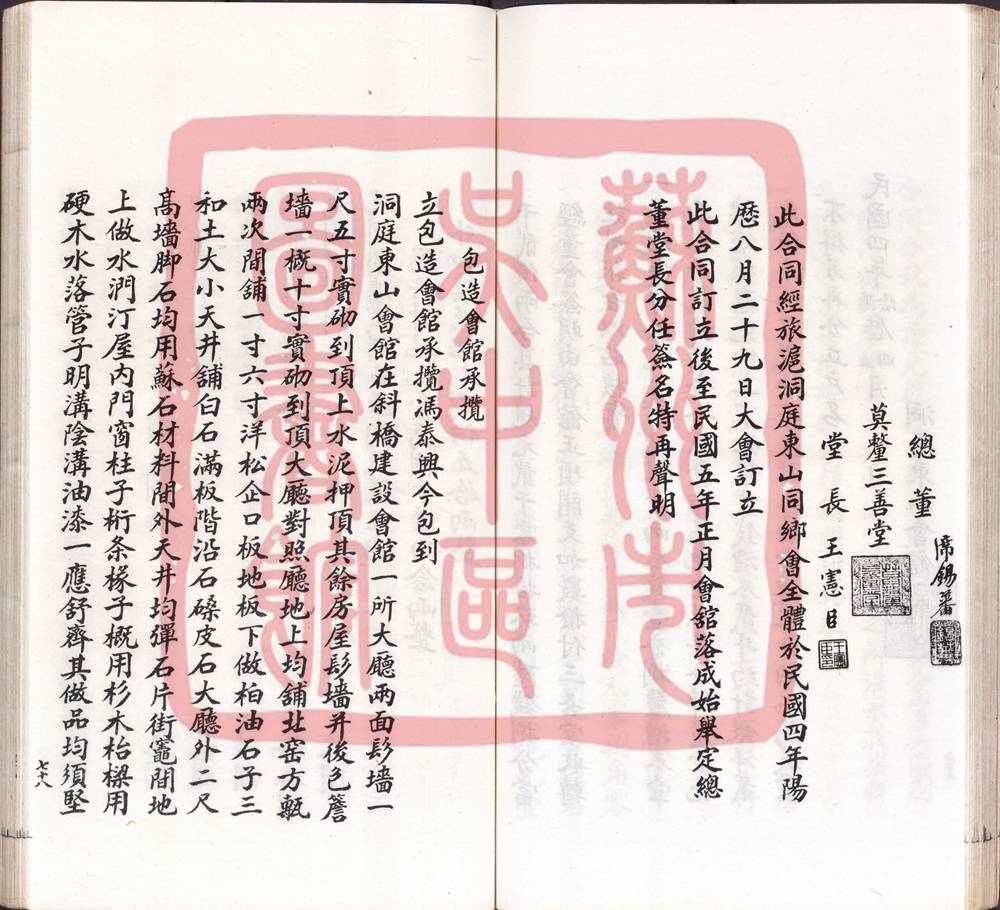 總董 席錫蕃
莫釐三善堂
堂長 王憲臣
此合同經旅滬洞庭東山同鄉會全體於民國四年陽
歷八月二十九日大會訂立
此合同訂立後至民國五年正月會舘落成始舉定總
董堂長分任簽名特再聲明
包造會館承攬
立包造會館承攬馮泰興今包到
洞庭東山會館在斜橋建設會館一所大廳兩面髟墻一
尺五寸實砌到頂上水泥押頂其餘房屋髟墻并後包簷
墻一概十寸實砌到頂大廳對照廳地上均舖北窑方甎
兩次間舖一寸六寸洋松企口板地板下做柏油石子三
和土大小天井舖白石滿板階沿石磉皮石大廳外二尺
高墻脚石均用蘇石材料間外天井均彈石片街竈間地
上做水門汀屋內門窗柱子桁条椽子概用杉木枱樑用
硬木水落管子明溝陰溝油漆一應舒齊其做品均須堅
七十八
蘇州市
吳中區
圖書館